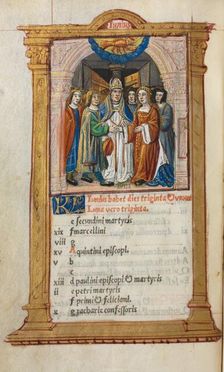 KL Ianius habet dies triginta & unum
Luna vero triginta.
e secundini martyris
xix f marcellini
viii g
A quintini episcopi
xv b
v c
xiii d paulini episcopi & martyris
ii e petri martyris
f primi & feliciani
x g zacharie confessoris